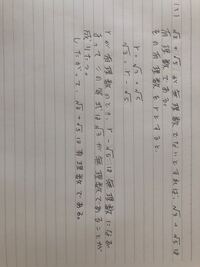 √3 + √5 が無理数でないとすれば、√3 + √5 は
有理数である。
その有理数をrとすると、
r = √3 + √5
√3 = r - √5
rが有理数のとき、r - √5 は無理数になる
よってこの等式は√3が無理数であることが
成り立つ。
したがって、√3 + √5 は無理数である。